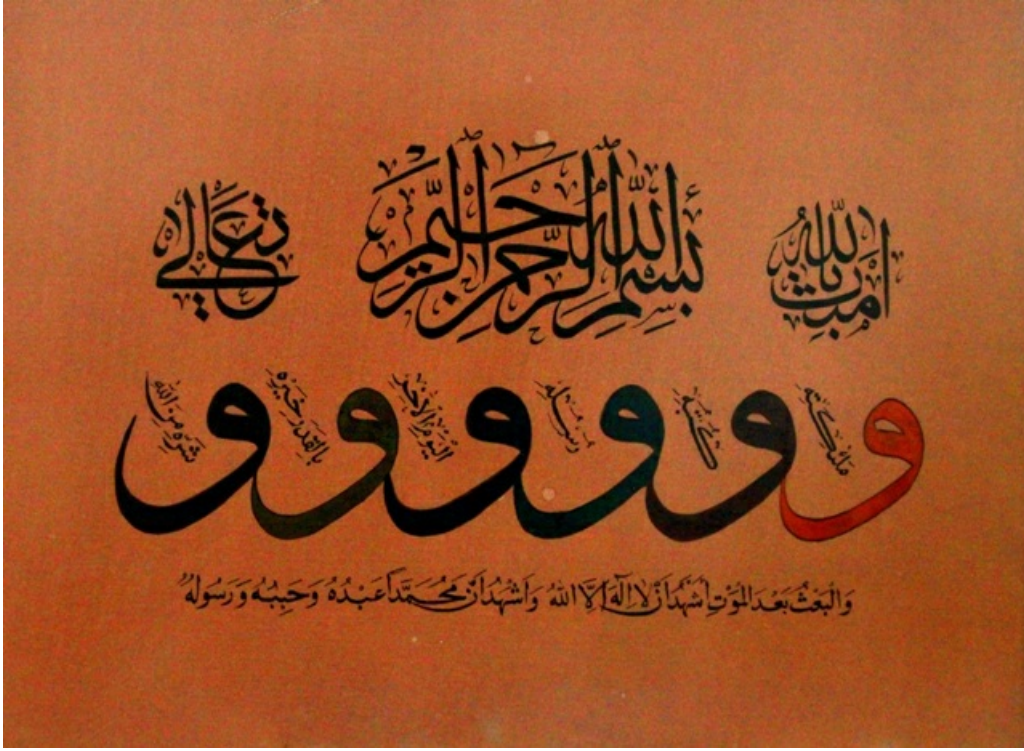 اٰمنت بالله بسم الله الرحمن الرحيم تعالى
و ملئكته و كتبه و رسله و اليوم الاخر و بالقدر خيره و شره من الله
وَالْبَعْثُ بَعْدَ الْمَوْتِ اَشْهَدُ اَنْ لَا اِلٰهَ اِلَّا اللهُ وَاَشْهَدُ اَنَّ مُحَمَّداً عَبْدُهُ وَحَبِيبُهُ وَرَسُولُهُ